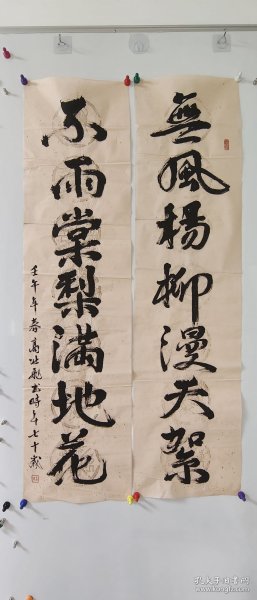 無風楊柳漫天絮
不雨棠梨滿地花
壬午年春高 書時年七十歲
孔夫子旧书网